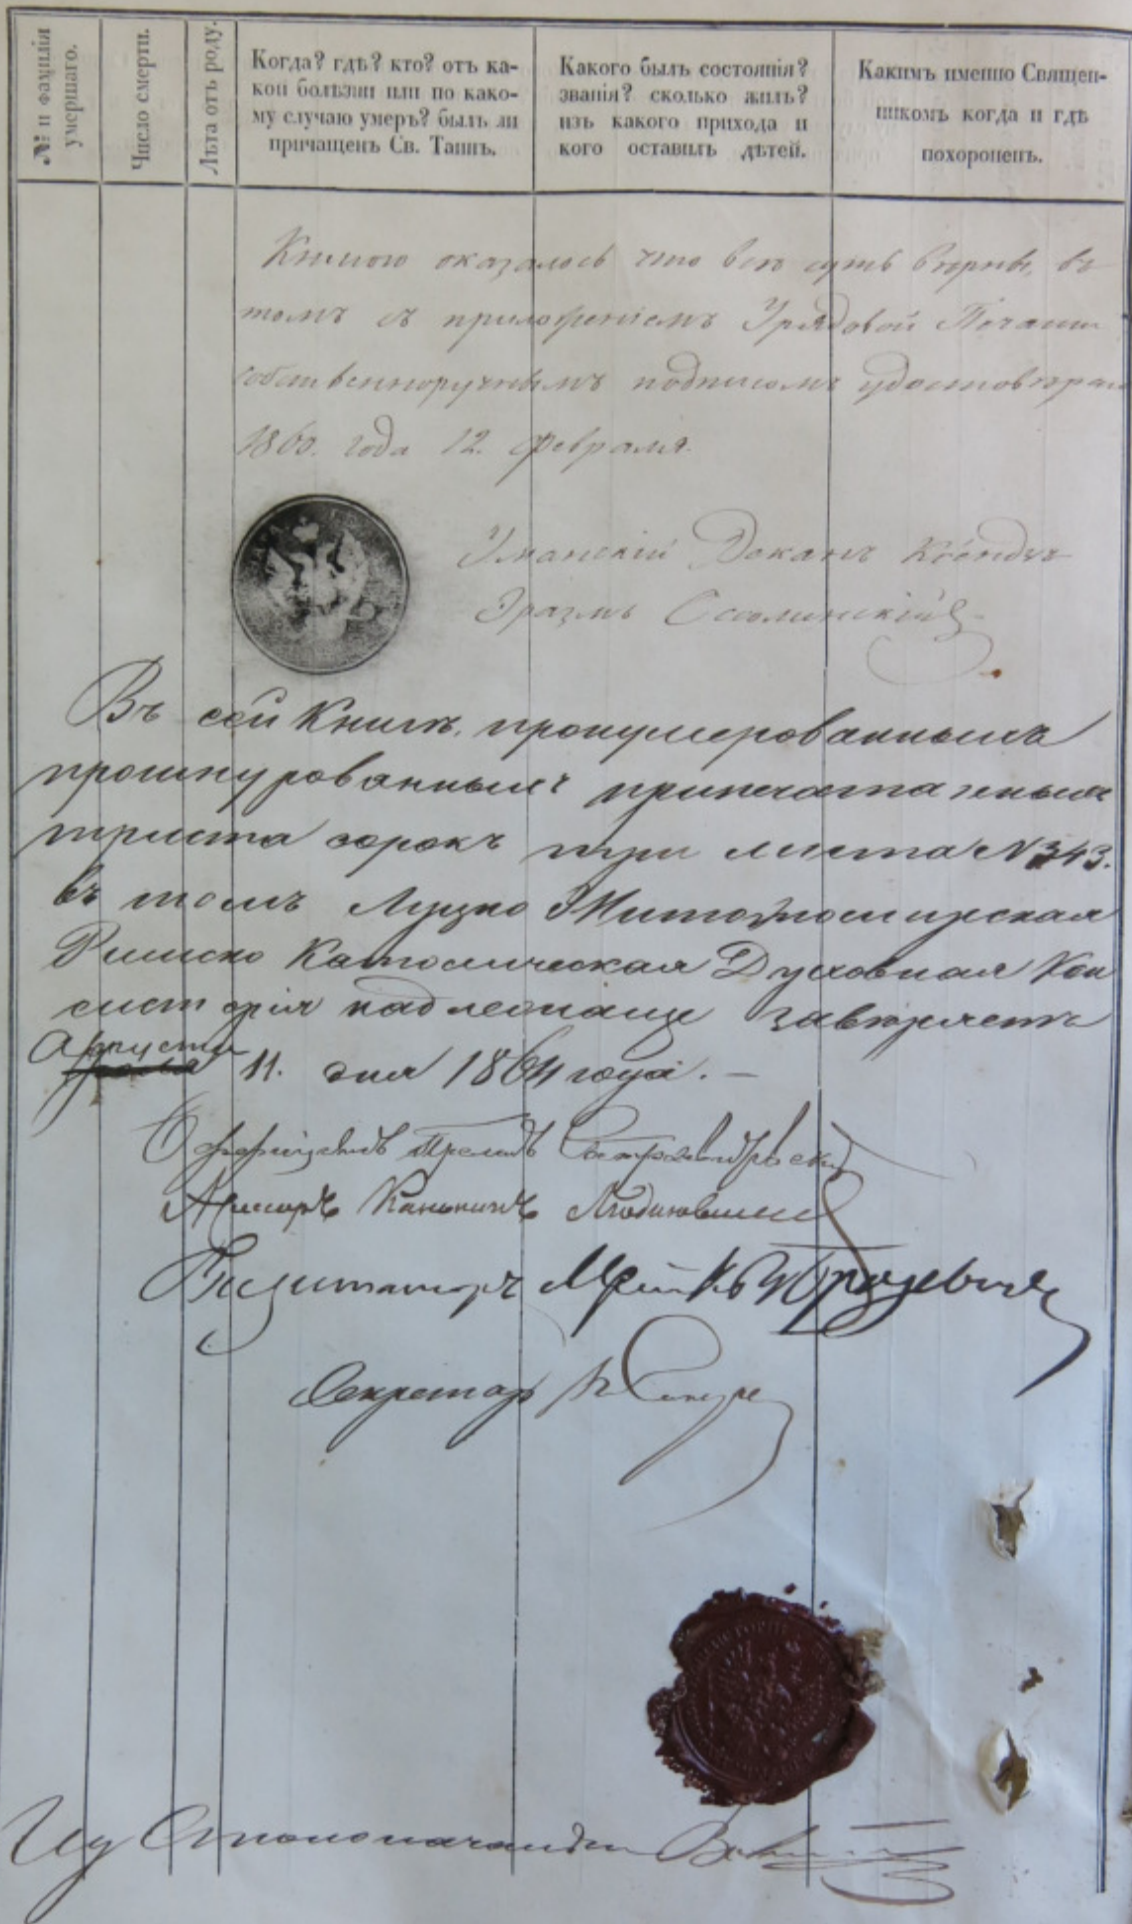 № и фамилія
умершаго.
Число смерти.
Лѣта отъ роду.
Когда? гдѣ? кто? отъ ка-
кой болѣзни или по како-
му случаю умеръ? былъ ли
причащенъ Св. Таинъ.
Какого былъ состоянія?
званія? сколько жилъ?
изъ какого прихода и
кого оставилъ дѣтей.
Какимъ именно Священ-
никомъ когда и гдѣ
похороненъ.
Книгою оказалось что всѣ суть вѣрны, въ
томъ съ приложеніемъ Урядовой Печати
собственноручнымъ подписомъ удостовѣряю
1860. года 12. Февраля.
Уманскій Деканъ Ксендзъ
Эразмъ
Въ сей Книгѣ, пронумерованныхъ
прошнурованныхъ припечатанныхъ
триста сорокъ три листа N 343.
въ томъ Луцко Житомирская
Римско Католическая Духовная Кон
систорія надлежаще завѣряетъ
Августа
11. дня 1864 года. —
Оффиціалъ Прелатъ
Ассесоръ Каноникъ
Визитаторъ
Секретарь
Столоначальника